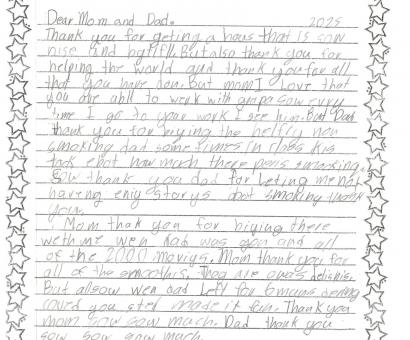 Dear Mom and Dad. 2025
Thank you for geting a haus that is sow
nise and But also thank you for
helping the world and thank you for all
that you have don. But mom I Love that
you are abll to work with grapa sow evry
time I go to your work I see him. But Dad
thank you for biying the hellty non
smoking dad some times in class kis
tock how much there smocking.
Sow thank you dad for leting me not
having eniy storys abot smoking thank
you.
Mom thak you for biying there
weth me wen dad was and all
of the 2000 movıys. Mom thank you for
all of the smoothis. Thay are owas delishis.
But allsow wen dad Left for 6 mans
coved you stel made it fun. Thank you
mom sow sow much. Dad thank you
sow sow sow much.